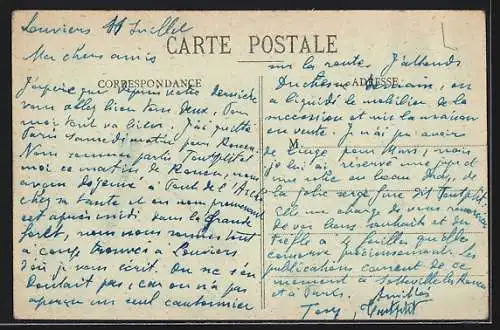 Louviers 11 Juillet
Mes chers amis
CARTE POSTALE
CORRESPONDANCE
ADRESSE
M
J'espère que depuis votre dernière
vous allez bien tous deux, Pour
moi tout va bien. J'ai quitté
Paris samedi matin pour Rouen.
Nous sommes partis Toutpetit et
moi ce matin de Rouen, nous
avons déjeuné à Pont de l'Arche
chez sa tante et en nous promenant
cet après midi dans la grande
forêt, nous nous sommes tout
à coup trouvés à Louviers
d'où je vous écris. On ne s'en
doutait pas, car on n'a pas
aperçu un seul cantonnier
sur la route. J'attends
Duchesne demain, on
a liquidé le mobilier de la
succession et mis la maison
en vente. Je n'ai pu avoir
de linge pour Mars, mais
je lui ai réservé une
robe en beau drap, de
la jolie serge
Elle me charge de vous remercier
de vos bons souhaits et du
trèfle à 4 feuilles qu'elle
conserve précieusement. Les
publications courent de ce
moment à Sotteville les Rouen
et à Paris. Amitiés
Toutpetit